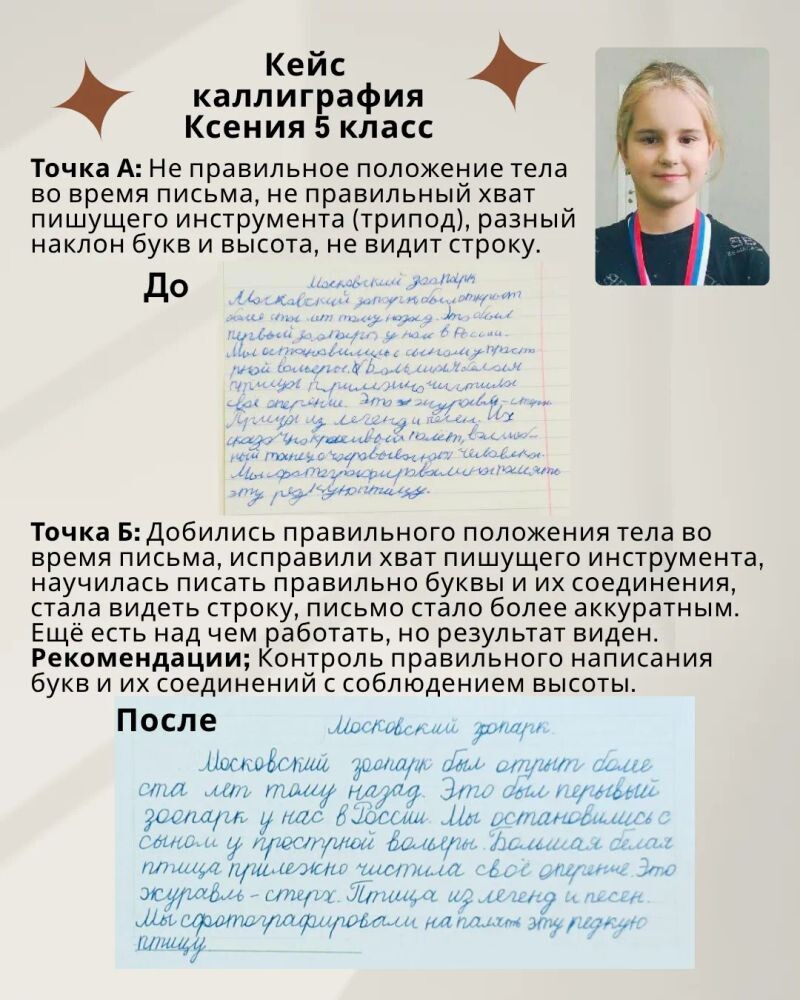 Кейс
каллиграфия
Ксения 5 класс
Точка А: Не правильное положение тела
во время письма, не правильный хват
пишущего инструмента (трипод), разный
наклон букв и высота, не видит строку.
До
Московский зоопарк
Московский запоркбылоткрост
более ста лет тому назад. Это был
первый зоопарк у нас в России.
Мы остановились с сыном у прастэ-
рной вольеры. Большая белая
птица прилежно чистила
своё оперение. Это журавль-стерх
Птица из легенд и песен. Их
сказочно красивый полёт,
ный танец очаровывают человека.
Мысфотографировалинапамять
эту редкуюптицу.
Точка Б: Добились правильного положения тела во
время письма, исправили хват пишущего инструмента,
научилась писать правильно буквы и их соединения,
стала видеть строку, письмо стало более аккуратным.
Ещё есть над чем работать, но результат виден.
Рекомендации; Контроль правильного написания
букв и их соединений с соблюдением высоты.
После
Московский зопарк.
Московский зоопарк был отрыт более
ста лет тому назад. Это был перывый
зоопарк у нас в России. Мы остановились с
сыном у прострной вольеры. Большая белая
птица прилежно чистила своё оперение. Это
журавль-стерх. Птица из легенд и песен.
Мы сфотографировали на память эту редкую
птицу